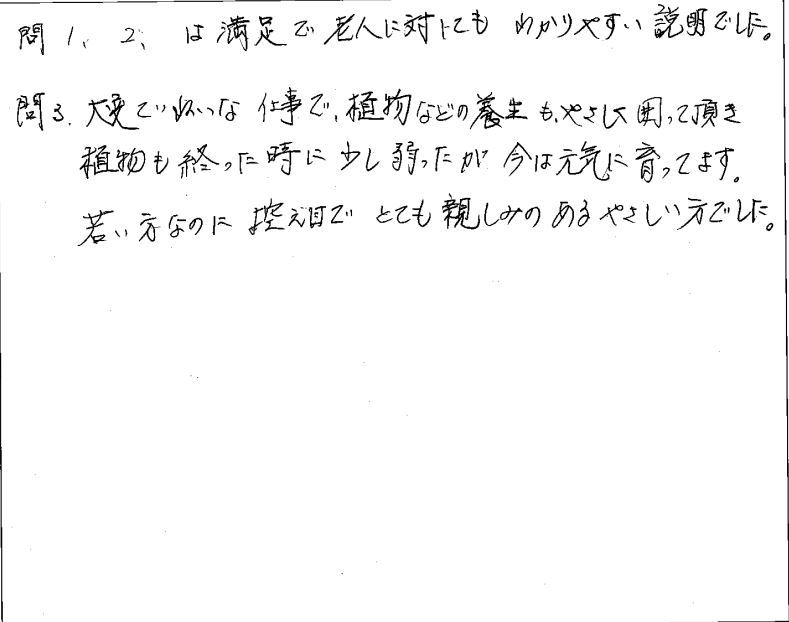 問1、2、は満足で老人に対してもわかりやすい説明でした。
問3.大変ていねいな仕事で、植物などの養生も、やさしく囲って頂き
植物も終った時に少し弱ったが今は元気に育ってます。
若い方なのに控え目でとても親しみのあるやさしい方でした。